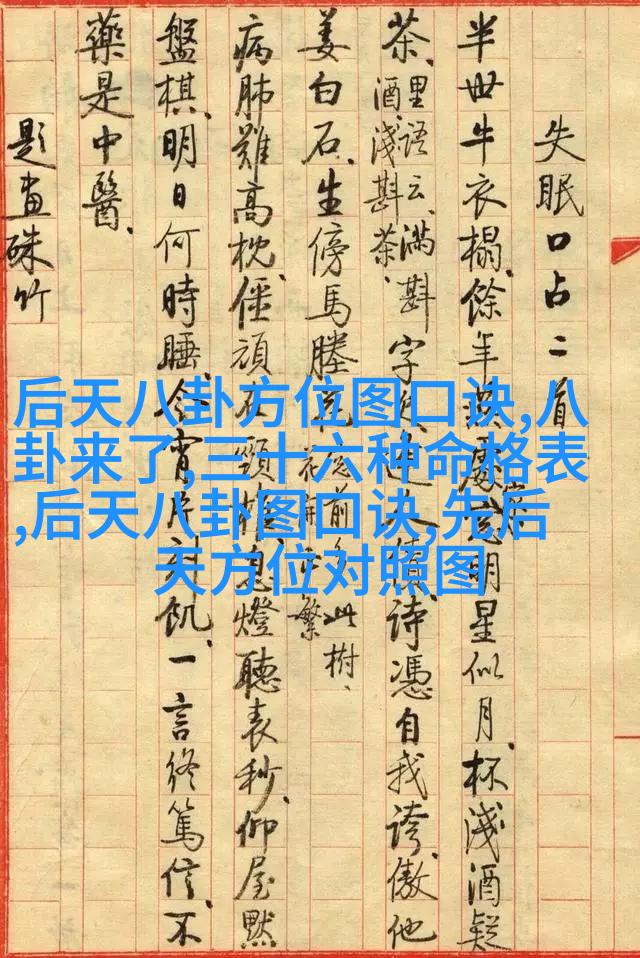 失眠口占二首
半世牛衣榻、餘年
明星似月、杯淺酒疑
茶、里語云、滿斟
酒、淺斟茶、字
詩憑自我誇、傲他
姜白石、生傍馬塍
前
此樹、
繁
病肺難高枕、僵頑
息燈聽表秒、仰屋默
盤棋、明日何時睡、今宵片刻飢、一言終篤信、不
藥是中醫、
題畫硃竹
后天八卦方位图口诀,八
卦来了,三十六种命格表
,后天八卦图口诀,先后
天方位对照图